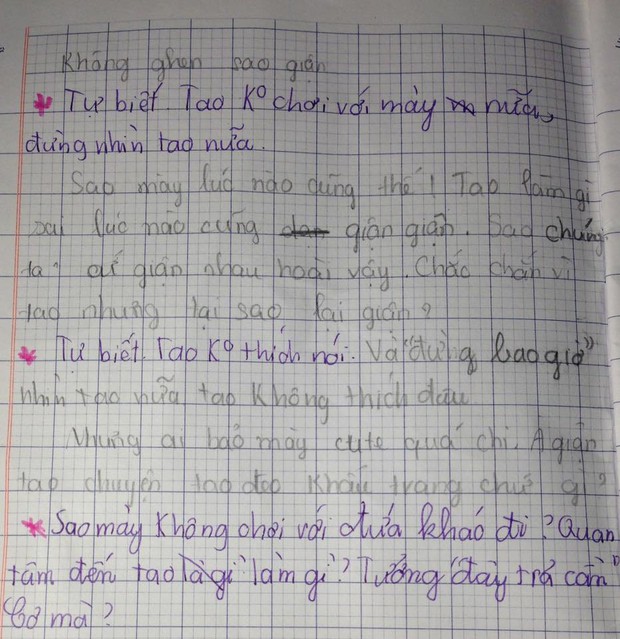 Không ghen sao giận
* Tự biết. Tao K° chơi với mày nữa,
đừng nhìn tao nữa.
Sao mày lúc nào cũng thế! Tao làm gì
sai lúc nào cũng giận giận. Sao chúng
ta cứ giận nhau hoài vậy. Chắc chắn vì
tao nhưng tại sao lại giận?
* Tự biết. Tao K° thích nói. Và "đừng bao giờ"
nhìn tao nữa tao không thích đâu
Nhưng ai bảo mày cute quá chi. À giận
tao chuyện tao đeo khẩu trang chứ gì?
* Sao mày không chơi với đứa khác đi? Quan
tâm đến tao làm gì? Tưởng đây trả cần
bơ mà?